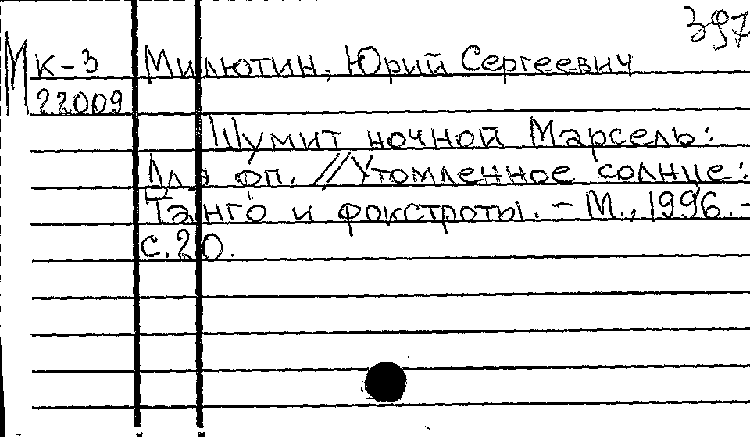 397
М к-3 Милютин, Юрий Сергеевич
22009
Шумит ночной Марсель:
Для фп. // Утомленное солнце:
Танго и фокстроты. - М., 1996. -
с. 20.